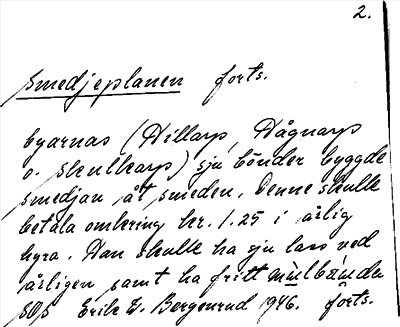 2.
Smedjeplanen forts.
byarnas (Hillarp, Hågnarp
o. Skulkarp) sju bönder byggde
smedjan åt smeden. Denne skulle
betala omkring kr. 1.25 i årlig
hyra. Han skulle ha sju lass ved
årligen samt ha fritt mulbånda
SOS Erik G. Bergenrud 1946. forts.